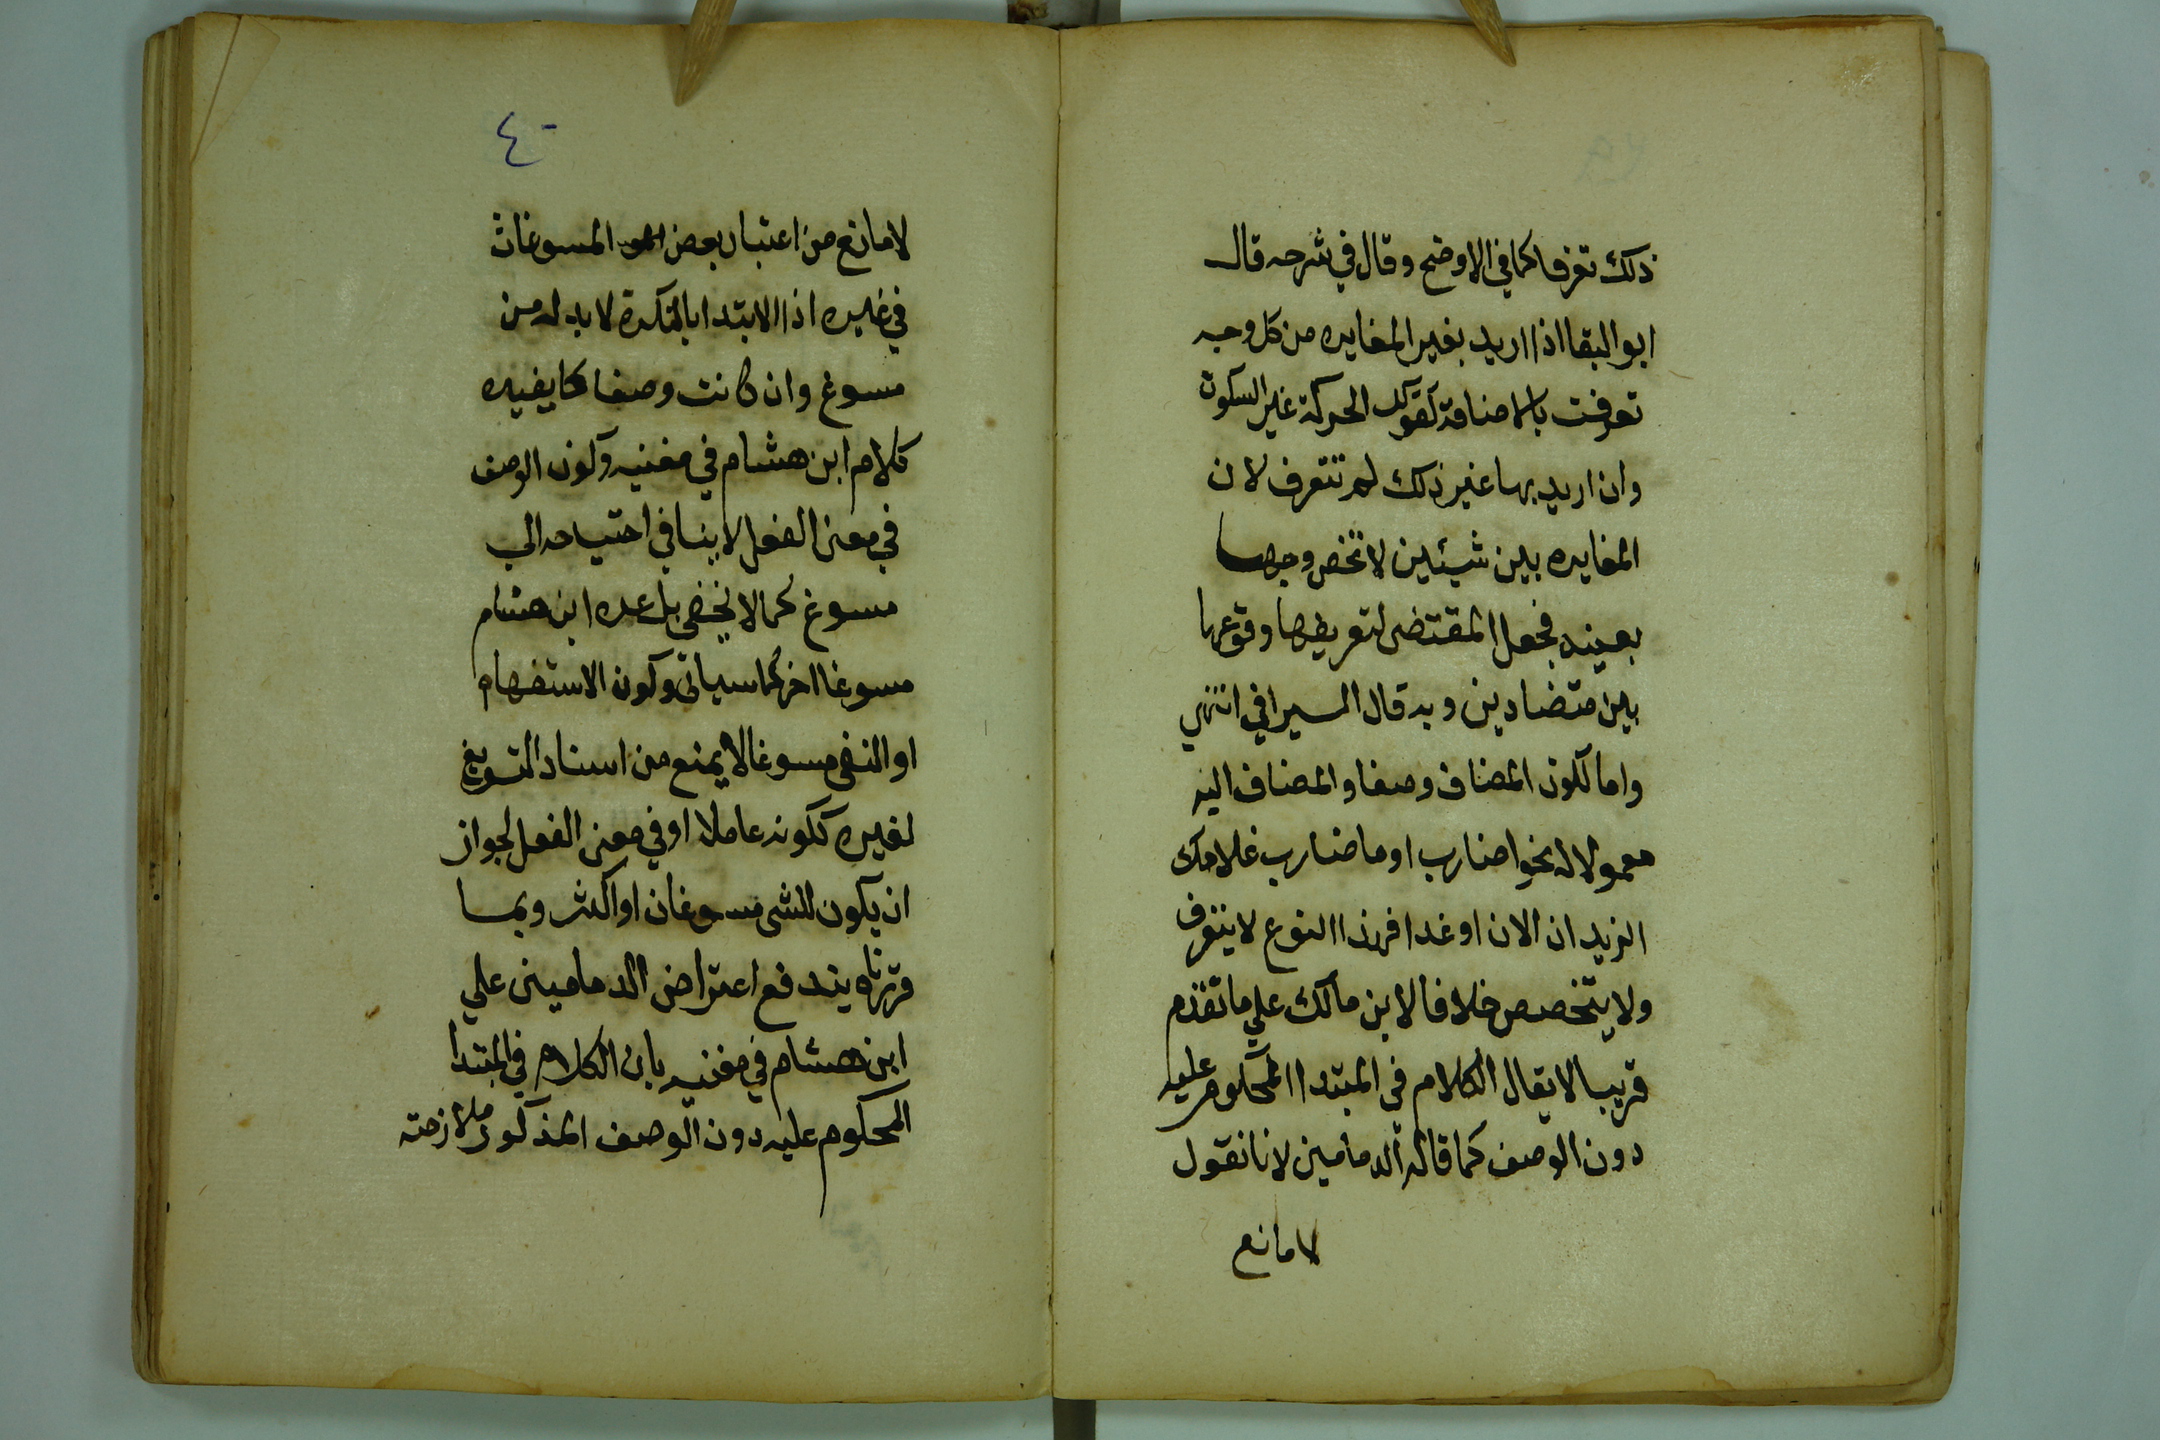 ذلك تعرفا كما في الاوضح وقال في شرحه قال
ابو البقا اذا اريد بغير المغايره من كل وجه
تعرفت بالاضافة كقولك الحركة غير السكون
وان اريد بها غير ذلك لم تتعرف لان
المغايره بين شيئين لا تخص وجها
بعينه فجعل المقتضى لتعريفها وقوعها
بين متضادين وبه قال السيرافي انتهي
واما لكون المضاف وصفا والمضاف اليه
معمولا له نحو اضارب او ما ضارب غلامك
الزيدان الان او غدا فهذا النوع لا يتعرف
ولا يتخصص خلافا لابن مالك علي ما تقدم
قريبا لا يقال الكلام في المبتدا المحكوم عليه
دون الوصف كما قاله الدمامين لانا نقول
لا مانع
٤٠
لا مانع من اعتبار بعض المسوغات
في غيره اذ الابتدا بالنكرة لا بد له من
مسوغ وان كانت وصفا كما يفيده
كلام ابن هشام في مغنيه وكون الوصف
في معنى الفعل لا ينافي احتياجه الي
مسوغ كما لا يخفى بل عده ابن هشام
مسوغا اخر كما سياتي وكون الاستفهام
او النفي مسوغا لا يمنع من اسناد التسويغ
لغيره ككونه عاملا او في معنى الفعل لجواز
ان يكون للشي مسوغان او اكثر وبما
قررناه يندفع اعتراض الدماميني علي
ابن هشام في مغنيه بان الكلام في المبتدا
المحكوم عليه دون الوصف المذكور ملازمته